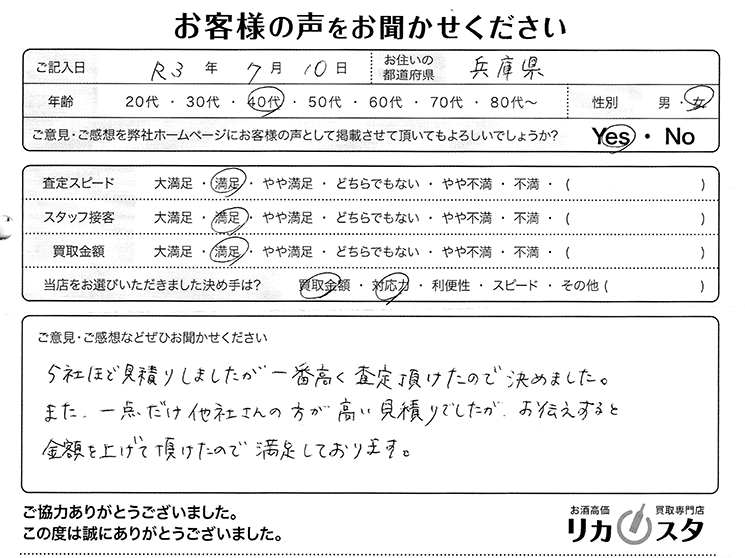 お客様の声をお聞かせください
ご記入日 R3 年 7 月 10 日 お住いの都道府県 兵庫県
年齢 20代 ・ 30代 ・ 40代 ・ 50代 ・ 60代 ・ 70代 ・ 80代～ 性別 男 ・ 女
ご意見・ご感想を弊社ホームページにお客様の声として掲載させて頂いてもよろしいでしょうか? Yes ・ No
査定スピード 大満足 ・ 満足 ・ やや満足 ・ どちらでもない ・ やや不満 ・ 不満 ・ ( )
スタッフ接客 大満足 ・ 満足 ・ やや満足 ・ どちらでもない ・ やや不満 ・ 不満 ・ ( )
買取金額 大満足 ・ 満足 ・ やや満足 ・ どちらでもない ・ やや不満 ・ 不満 ・ ( )
当店をお選びいただきました決め手は? 買取金額 ・ 対応力 ・ 利便性 ・ スピード ・ その他 ( )
ご意見・ご感想などぜひお聞かせください
5社ほど見積りしましたが一番高く査定頂けたので決めました。
また、一点だけ他社さんの方が高い見積りでしたが、お伝えすると
金額を上げて頂けたので満足しております。
ご協力ありがとうございました。
この度は誠にありがとうございました。
お酒高価 買取専門店
リカスタ